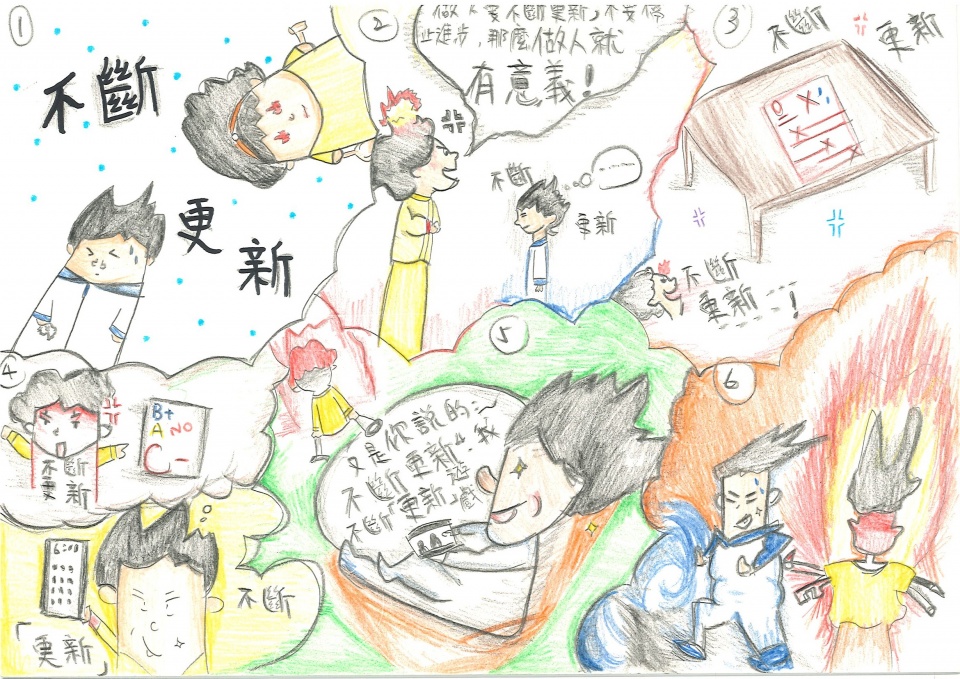 ①
不斷
更
新
②
做人要不斷更新，不要停
止進步，那麼做人就
有意義！
不斷
更新
③
不斷
更新
不斷
更新---！
④
B+
A NO
C-
不斷
更新
6:00
不斷
「更新」
⑤
又是你說的:
不斷"更新"，我
不斷「更新」遊戲
⑥